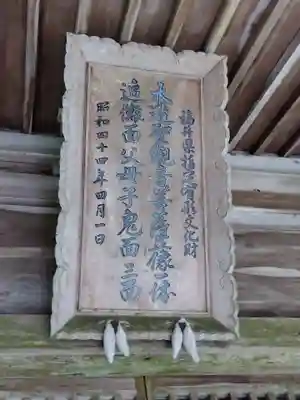 福井県指定有形文化財
木造聖観世音菩薩立像一体
追儺面父母子鬼面三面
昭和四十四年四月一日